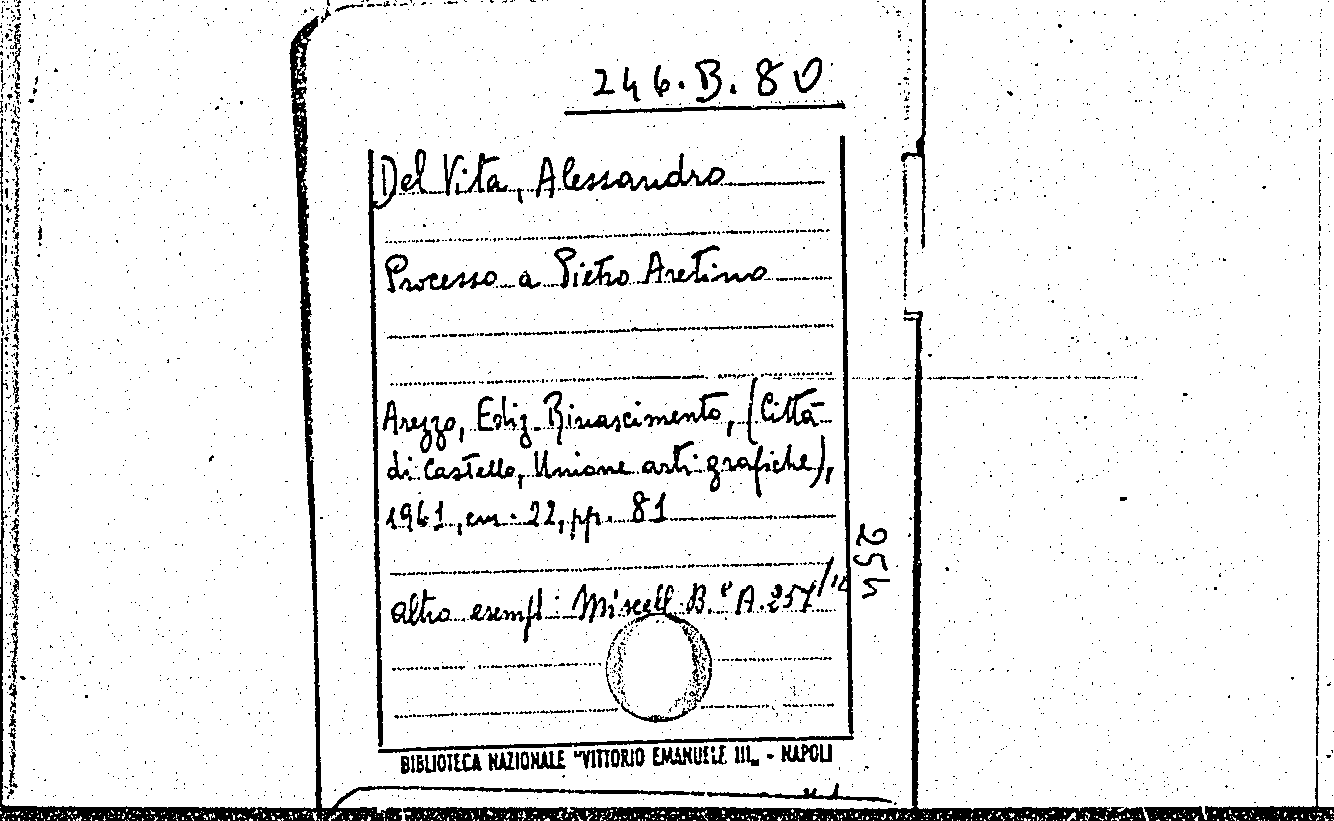 246.B.80
Del Vita, Alessandro
Processo a Pietro Aretino
Arezzo, Ediz. Rinascimento, (Città
di Castello, Unione arti grafiche),
1961, cm. 22, pp. 81
altro esempl: Miscell. B.ª A.257/
254
BIBLIOTECA NAZIONALE "VITTORIO EMANUELE III„ - NAPOLI